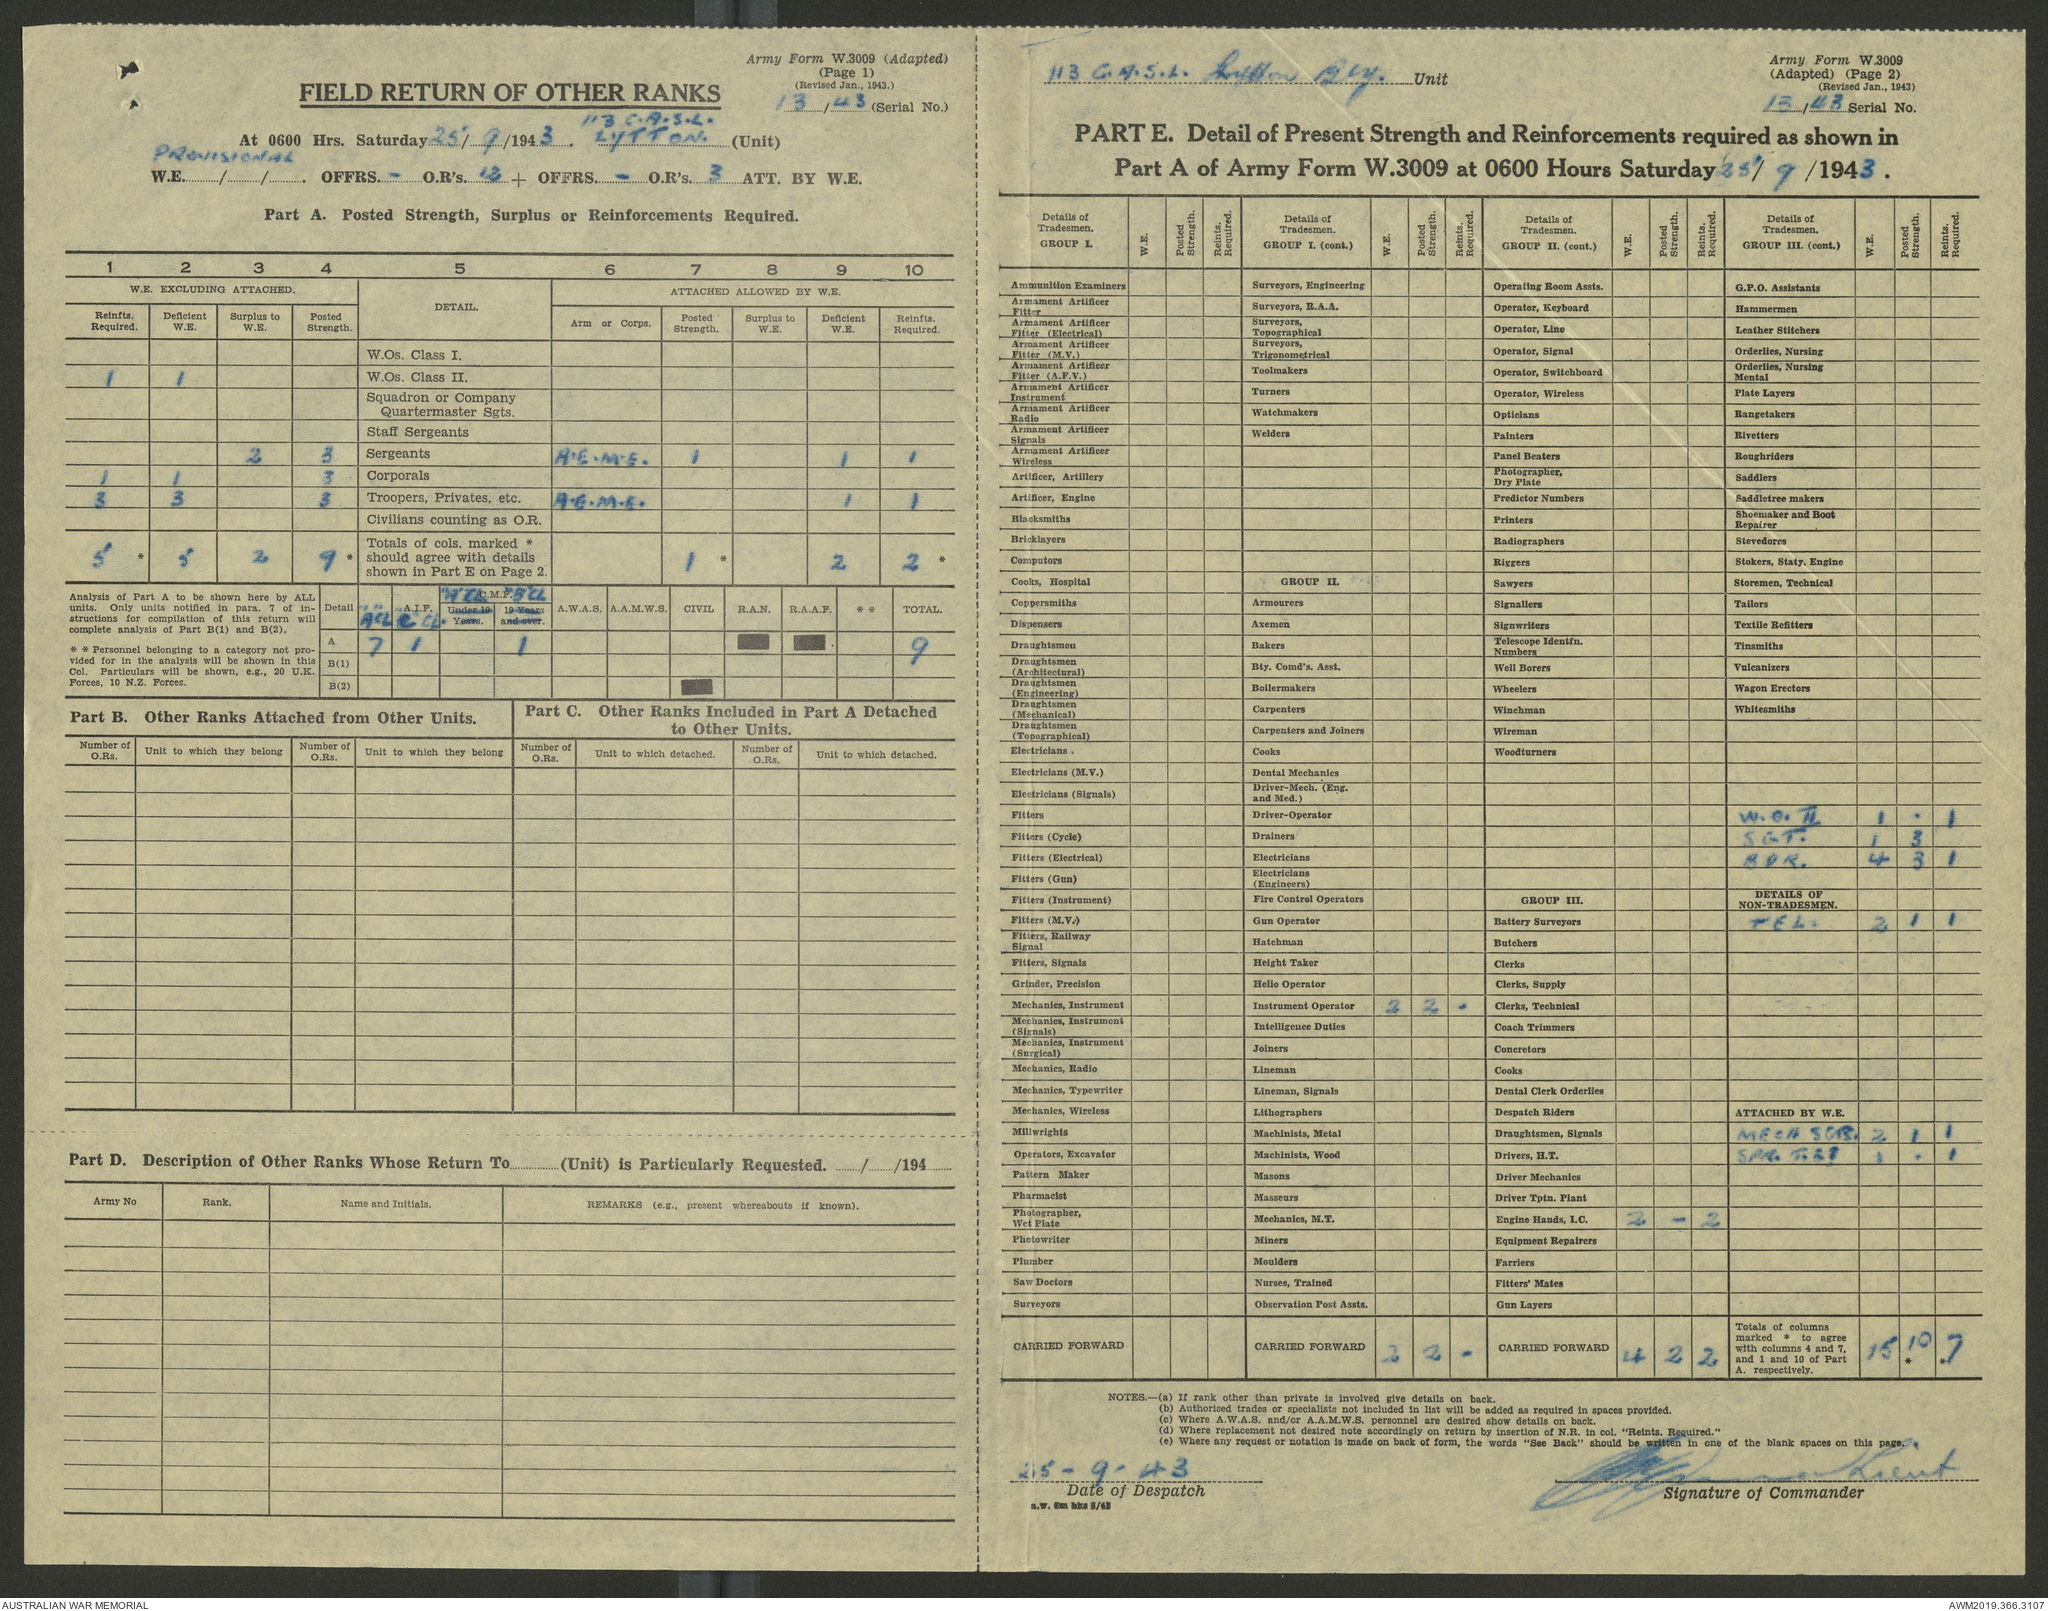 Army Form W.3009 (Adapted)
(Page 1)
(Revised Jan., 1943.)
13/43 (Serial No.)
FIELD RETURN OF OTHER RANKS
113 C.A.S.L.
At 0600 Hrs. Saturday 25/9/1943. LYTTON. (Unit)
PROVISIONAL
W.E. / / . OFFRS. - O.R's. 12 + OFFRS. - O.R's. 3 ATT. BY W.E.
Part A. Posted Strength, Surplus or Reinforcements Required.
1 2 3 4 5 6 7 8 9 10
W.E. EXCLUDING ATTACHED. DETAIL. ATTACHED ALLOWED BY W.E.
Reinfts. Required. Deficient W.E. Surplus to W.E. Posted Strength. Arm or Corps. Posted Strength. Surplus to W.E. Deficient W.E. Reinfts. Required.
W.Os. Class I.
1 1 W.Os. Class II.
Squadron or Company
Quartermaster Sgts.
Staff Sergeants
2 3 Sergeants A.E.M.E. 1 1 1
1 1 3 Corporals
3 3 3 Troopers, Privates, etc. A.E.M.E. 1 1
Civilians counting as O.R.
5 * 5 2 9 * Totals of cols. marked * should agree with details shown in Part E on Page 2. 1 * 2 2 *
Analysis of Part A to be shown here by ALL
units. Only units notified in para. 7 of in-
structions for compilation of this return will
complete analysis of Part B(1) and B(2).
* * Personnel belonging to a category not pro-
vided for in the analysis will be shown in this
Col. Particulars will be shown, e.g., 20 U.K.
Forces, 10 N.Z. Forces.
Detail A.I.F. C.M.F. Under 19 Years. 19 Years and over. A.W.A.S. A.A.M.W.S. CIVIL R.A.N. R.A.A.F. * * TOTAL.
A 7 1 1 9
B(1)
B(2)
Part B. Other Ranks Attached from Other Units.
Number of O.Rs. Unit to which they belong Number of O.Rs. Unit to which they belong
Part C. Other Ranks Included in Part A Detached
to Other Units.
Number of O.Rs. Unit to which detached. Number of O.Rs. Unit to which detached.
Part D. Description of Other Ranks Whose Return To (Unit) is Particularly Requested. / /194
Army No Rank. Name and Initials. REMARKS (e.g., present whereabouts if known).
113 C.A.S.L. Lytton Bty. Unit
Army Form W.3009
(Adapted) (Page 2)
(Revised Jan., 1943)
13/43 Serial No.
PART E. Detail of Present Strength and Reinforcements required as shown in
Part A of Army Form W.3009 at 0600 Hours Saturday 25/9/1943.
Details of Tradesmen. GROUP I. W.E. Posted Strength. Reints. Required.
Ammunition Examiners
Armament Artificer Fitter
Armament Artificer Fitter (Electrical)
Armament Artificer Fitter (M.V.)
Armament Artificer Fitter (A.F.V.)
Armament Artificer Instrument
Armament Artificer Radio
Armament Artificer Signals
Armament Artificer Wireless
Artificer, Artillery
Artificer, Engine
Blacksmiths
Bricklayers
Computors
Cooks, Hospital
Coppersmiths
Dispensers
Draughtsmen
Draughtsmen (Architectural)
Draughtsmen (Engineering)
Draughtsmen (Mechanical)
Draughtsmen (Topographical)
Electricians .
Electricians (M.V.)
Electricians (Signals)
Fitters
Fitters (Cycle)
Fitters (Electrical)
Fitters (Gun)
Fitters (Instrument)
Fitters (M.V.)
Fitters, Railway Signal
Fitters, Signals
Grinder, Precision
Mechanics, Instrument
Mechanics, Instrument (Signals)
Mechanics, Instrument (Surgical)
Mechanics, Radio
Mechanics, Typewriter
Mechanics, Wireless
Millwrights
Operators, Excavator
Pattern Maker
Pharmacist
Photographer, Wet Plate
Photowriter
Plumber
Saw Doctors
Surveyors
CARRIED FORWARD
Details of Tradesmen. GROUP I. (cont.) W.E. Posted Strength. Reints. Required.
Surveyors, Engineering
Surveyors, R.A.A.
Surveyors, Topographical
Surveyors, Trigonometrical
Toolmakers
Turners
Watchmakers
Welders
GROUP II.
Armourers
Axemen
Bakers
Bty. Comd's. Asst.
Boilermakers
Carpenters
Carpenters and Joiners
Cooks
Dental Mechanics
Driver-Mech. (Eng. and Med.)
Driver-Operator
Drainers
Electricians
Electricians (Engineers)
Fire Control Operators
Gun Operator
Hatchman
Height Taker
Helio Operator
Instrument Operator 2 2 -
Intelligence Duties
Joiners
Lineman
Lineman, Signals
Lithographers
Machinists, Metal
Machinists, Wood
Masons
Masseurs
Mechanics, M.T.
Miners
Moulders
Nurses, Trained
Observation Post Assts.
CARRIED FORWARD 2 2 -
Details of Tradesmen. GROUP II. (cont.) W.E. Posted Strength. Reints. Required.
Operating Room Assts.
Operator, Keyboard
Operator, Line
Operator, Signal
Operator, Switchboard
Operator, Wireless
Opticians
Painters
Panel Beaters
Photographer, Dry Plate
Predictor Numbers
Printers
Radiographers
Riggers
Sawyers
Signallers
Signwriters
Telescope Identfn. Numbers
Well Borers
Wheelers
Winchman
Wireman
Woodturners
GROUP III.
Battery Surveyors
Butchers
Clerks
Clerks, Supply
Clerks, Technical
Coach Trimmers
Concretors
Cooks
Dental Clerk Orderlies
Despatch Riders
Draughtsmen, Signals
Drivers, H.T.
Driver Mechanics
Driver Tptn. Plant
Engine Hands, I.C. 2 - 2
Equipment Repairers
Farriers
Fitters' Mates
Gun Layers
CARRIED FORWARD 4 2 2
Details of Tradesmen. GROUP III. (cont.) W.E. Posted Strength. Reints. Required.
G.P.O. Assistants
Hammermen
Leather Stitchers
Orderlies, Nursing
Orderlies, Nursing Mental
Plate Layers
Rangetakers
Rivetters
Roughriders
Saddlers
Saddletree makers
Shoemaker and Boot Repairer
Stevedores
Stokers, Staty. Engine
Storemen, Technical
Tailors
Textile Refitters
Tinsmiths
Vulcanizers
Wagon Erectors
Whitesmiths
W.O. II 1 . 1
SGT. 1 3
BDR. 4 3 1
DETAILS OF NON-TRADESMEN.
TEL. 2 1 1
ATTACHED BY W.E.
MECH SGR. 2 1 1
1 . 1
Totals of columns marked * to agree with columns 4 and 7, and 1 and 10 of Part A. respectively. 15 10 * 7 *
NOTES.—(a) If rank other than private is involved give details on back.
(b) Authorised trades or specialists not included in list will be added as required in spaces provided.
(c) Where A.W.A.S. and/or A.A.M.W.S. personnel are desired show details on back.
(d) Where replacement not desired note accordingly on return by insertion of N.R. in col. "Reints. Required."
(e) Where any request or notation is made on back of form, the words "See Back" should be written in one of the blank spaces on this page.
25-9-43
Date of Despatch
Signature of Commander
a.w. 6m bks 5/43
AUSTRALIAN WAR MEMORIAL
AWM2019.366.3107